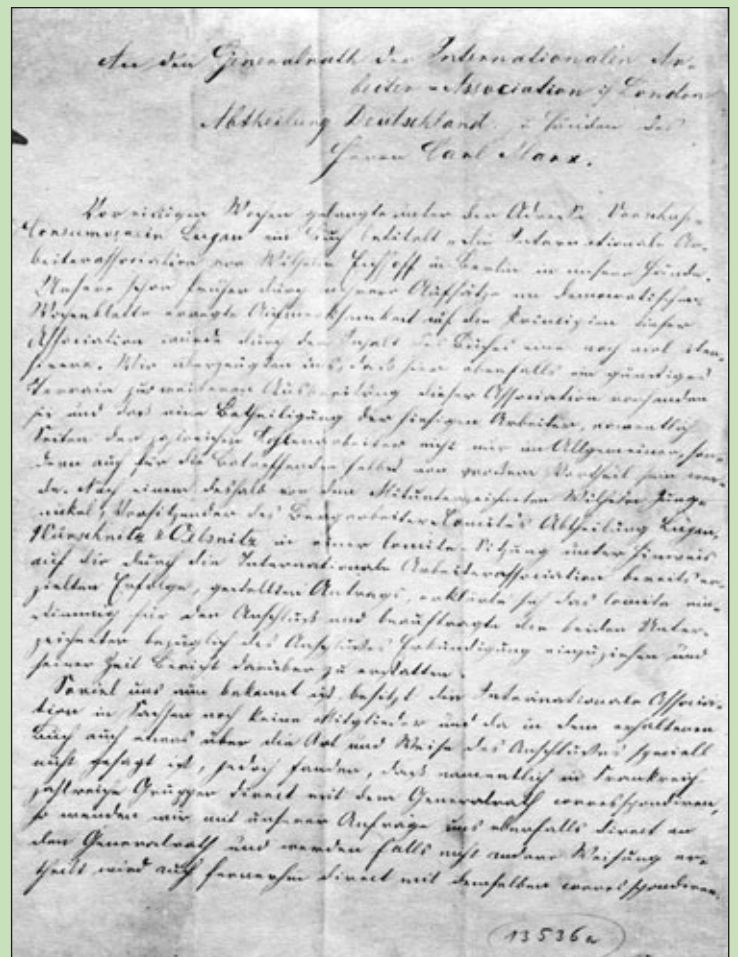 An den Generalrath der Internationalen Ar-
beiter-Association z/ London
Abtheilung Deutschland z. Händen des
Herrn Carl Marx.
Vor einigen Wochen gelangte unter der Adresse Vorschuß-
Consumverein Lugau ein Buch betitelt „die Internationale Ar-
beiterassociation von Wilhelm Eichhoff in Berlin in unsere Hände.
Unsere schon früher durch mehrere Aufsätze im demokratischen
Wochenblatte erregte Aufmerksamkeit auf die Prinzipien dieser
Association wurde durch den Inhalt des Buches eine noch viel
Wir überzeugten uns, daß hier ebenfalls ein günstiges
Terrain zur weiteren Ausbreitung dieser Association vorhanden
sei und daß eine Betheiligung der hiesigen Arbeiter, namentlich
Seiten der zahlreichen Kohlenarbeiter nicht nur im Allgemeinen, son-
dern auch für die Betreffenden selbst von großem Vortheil sein wer-
de. Nach einem deshalb von dem Mitunterzeichneten Wilhelm Jung-
nickel, Vorsitzender des Bergarbeiter-Comités Abtheilung Lugau,
Würschnitz & Oelsnitz in einer Comité-Sitzung unter Hinweis
auf die durch die Internationale Arbeiterassociation bereits er-
zielten Erfolge, gestellten Antrags, erklärte sich das Comité ein-
stimmig für den Anschluß und beauftragte die beiden Unter-
zeichneten bezüglich des Anschlußes Erkundigung einzuziehen und
seiner Zeit Bericht darüber zu erstatten.
Soviel uns nun bekannt ist, besitzt die Internationale Associa-
tion in Sachsen noch keine Mitglieder und da in dem erhaltenen
Buch auch etwas über die Art und Weise des Anschlußes speciell
nicht gesagt ist, jedoch fanden, daß namentlich in Frankreich
zahlreiche Gruppen direct mit dem Generalrath correspondiren,
so wenden wir mit unserer Anfrage uns ebenfalls direct an
den Generalrath und werden falls nicht andere Weisung er-
theilt wird auch fernerhin direct mit demselben correspondiren.
13536a